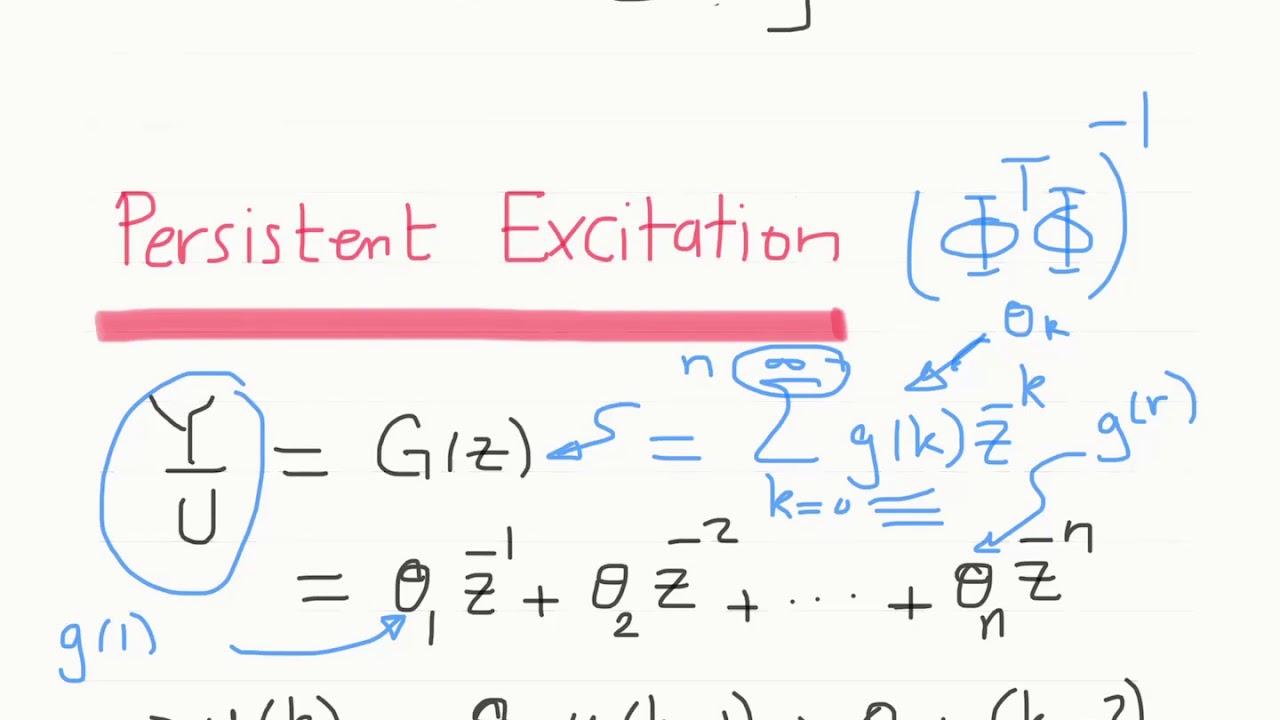 Persistent Excitation (Φ^T Φ)^-1
θ_k
Y/U = G(z) = n ∞ Σ k=0 g(k) z^-k g(r)
= θ_1 z^-1 + θ_2 z^-2 + ... + θ_n z^-n
g(1)